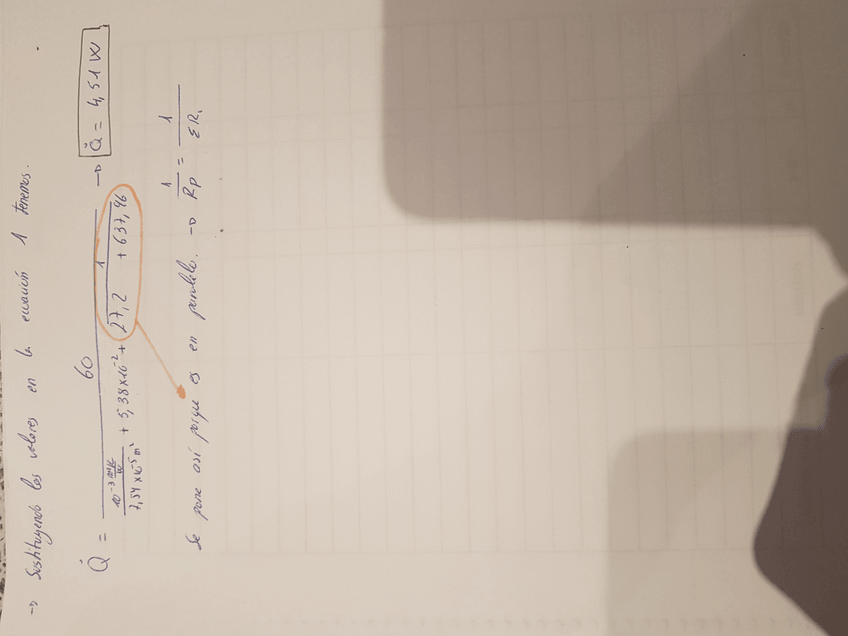 → Sustituyendo los valores en la ecuación 1 tenemos.
Q̇ = 60 / (10⁻³ m²K/W / 7,54×10⁻⁵ m² + 5,38×10⁻² + 1 / (27,2 + 637,96)) → Q̇ = 4,51 W
Se pone así porque es en paralelo. → 1/Rp = 1/ΣRi